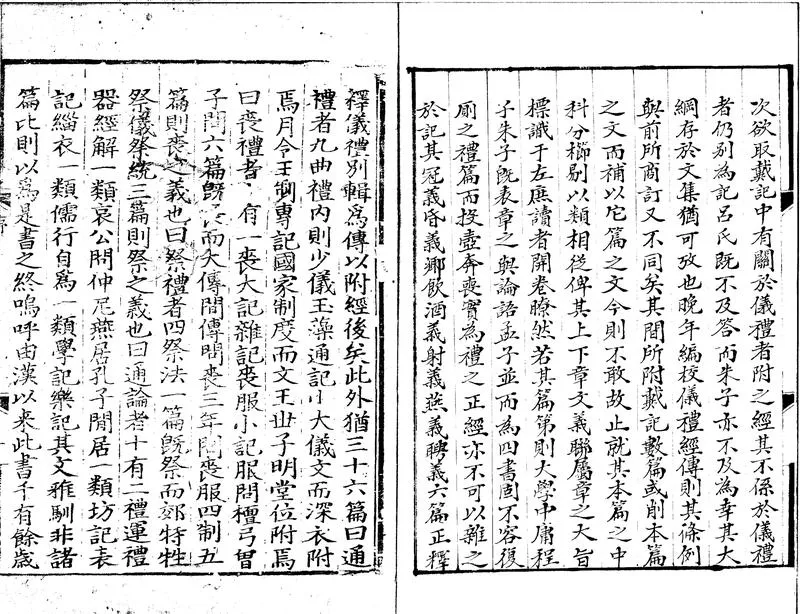 次欲取戴記中有關於儀禮者附之經其不係於儀禮
者仍别為記吕氏既不及答而朱子亦不及為幸其大
綱存於文集猶可攷也晚年編校儀禮經傳則其條例
與前所商訂又不同矣其間所附戴記數篇或削本篇
之文而補以他篇之文今則不敢故止就其本篇之中
科分櫛剔以類相從俾其上下章文義聯屬章之大旨
標識于左庶讀者開卷瞭然若其篇第則大學中庸程
子朱子既表章之與論語孟子並而為四書固不容復
厠之禮篇而投壺奔喪實為禮之正經亦不可以雜之
於記其冠義昏義鄉飲酒義射義燕義聘義六篇正釋
釋儀禮别輯爲傳以附經後矣此外猶三十六篇曰通
禮者九曲禮内則少儀玉藻通記小大儀文而深衣附
焉月令王制專記國家制度而文王世子明堂位附焉
曰喪禮者 有一喪大記雜記喪服小記服問檀弓曽
子問六篇旣 而大傳間傳問喪三年問喪服四制五
篇則喪之義也曰祭禮者四祭法一篇旣祭而郊特牲
祭儀祭統三篇則祭之義也曰通論者十有二禮運禮
器經解一類哀公問仲尼燕居孔子閒居一類坊記表
記緇衣一類儒行自爲一類學記樂記其文雅馴非諸
篇比則以爲是書之終嗚呼由漢以來此書千有餘歲